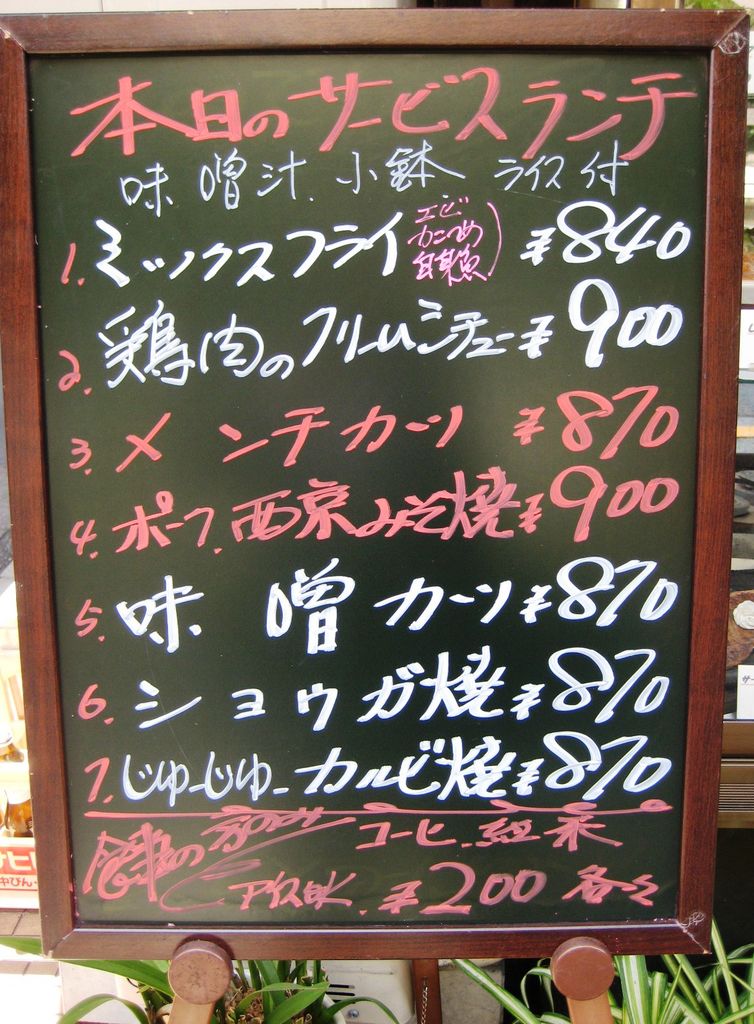 本日のサービスランチ
味噌汁.小鉢 ライス付
1.ミックスフライ ¥840
エビ
カニつめ
白身魚
2.鶏肉のクリームシチュー ¥900
3.メンチカーツ ¥870
4.ポーク.西京みそ焼 ¥900
5.味噌カーツ ¥870
6.ショウガ焼 ¥870
7.じゅーじゅーカルビ焼 ¥870
食事の方 コーヒ.紅茶
アイス ¥200 各々